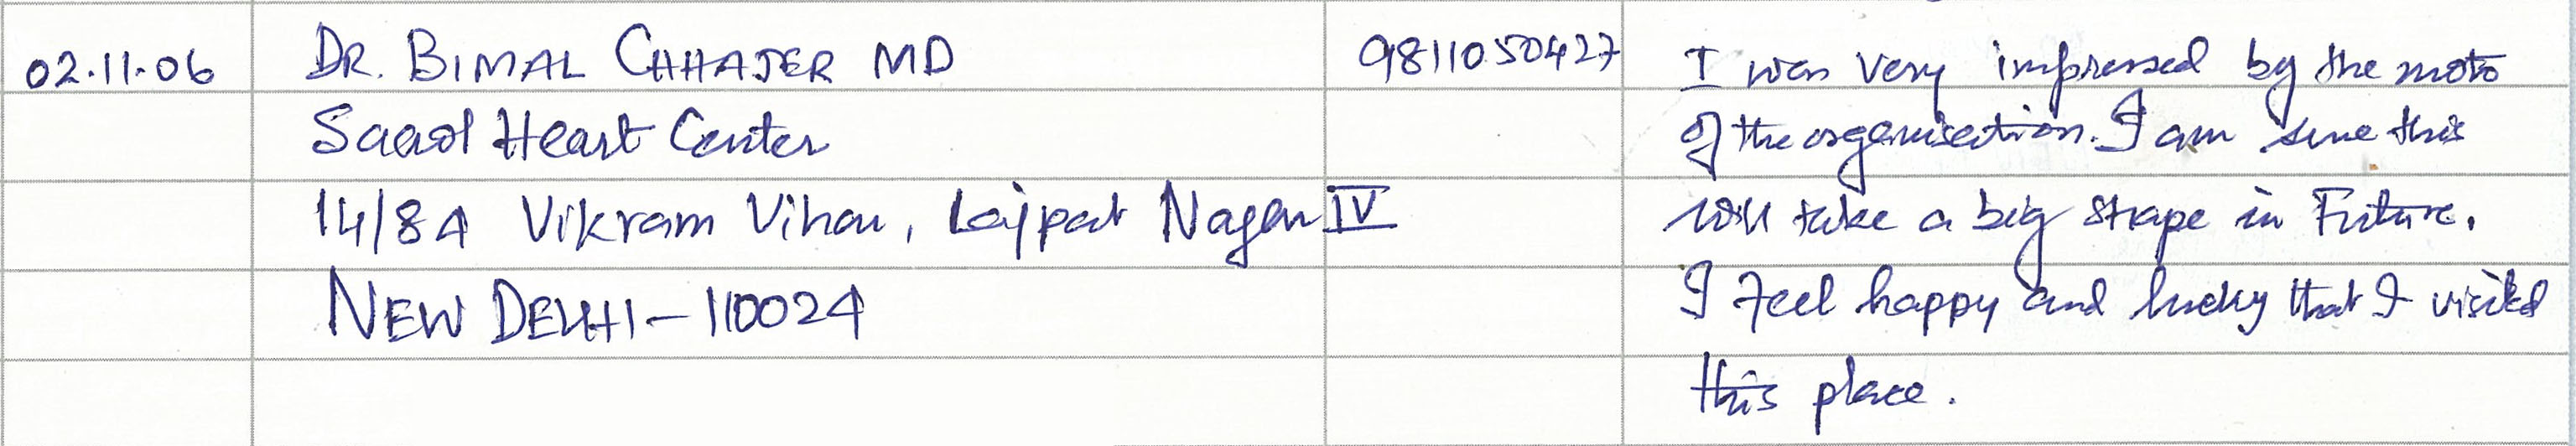 02.11.06 DR. BIMAL CHHAJER MD 9811050427 I was very impressed by the moto
Saaol Heart Center of the organisation. I am sure this
14/84 Vikram Vihar, Lajpat Nagar IV will take a big shape in Future.
NEW DELHI - 110024 I feel happy and lucky that I visited
this place.